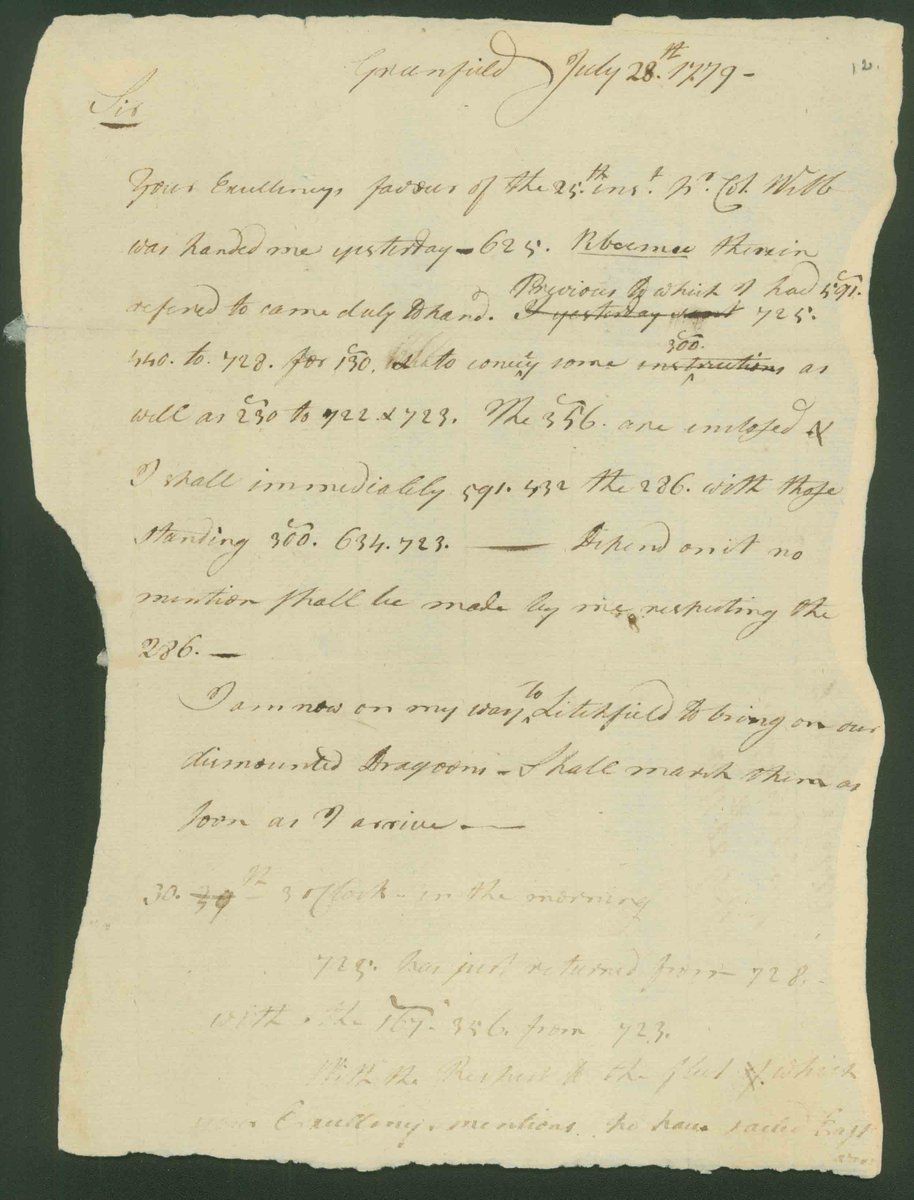 12.
Greenfield July 28.th 1779 -
Sir
Your Excellency's favour of the 25.th inst. pr. Col. Webb
was handed me yesterday - 625. therein
Previous to which I had 591.
refered to came duly to hand. I yesterday sent 725.
300.
440. to. 728. for 130. to convey some instructions as
well as 230 to 722. & 723. The 356. are inclosed &
I shall immediately 591. 432 the 286. with those
standing 300. 634. 723. — Depend on it no
mention shall be made by me respecting the
286. —
I am now on my way to Litchfield to bring on our
dismounted Dragoons - Shall march them as
soon as I arrive —
30. 29th - 3 oClock - in the morning
725. has just returned from 728.
with the 167. 356. from 723.
With the Respect to the fleet of which
your Excellency mentions to have sailed East